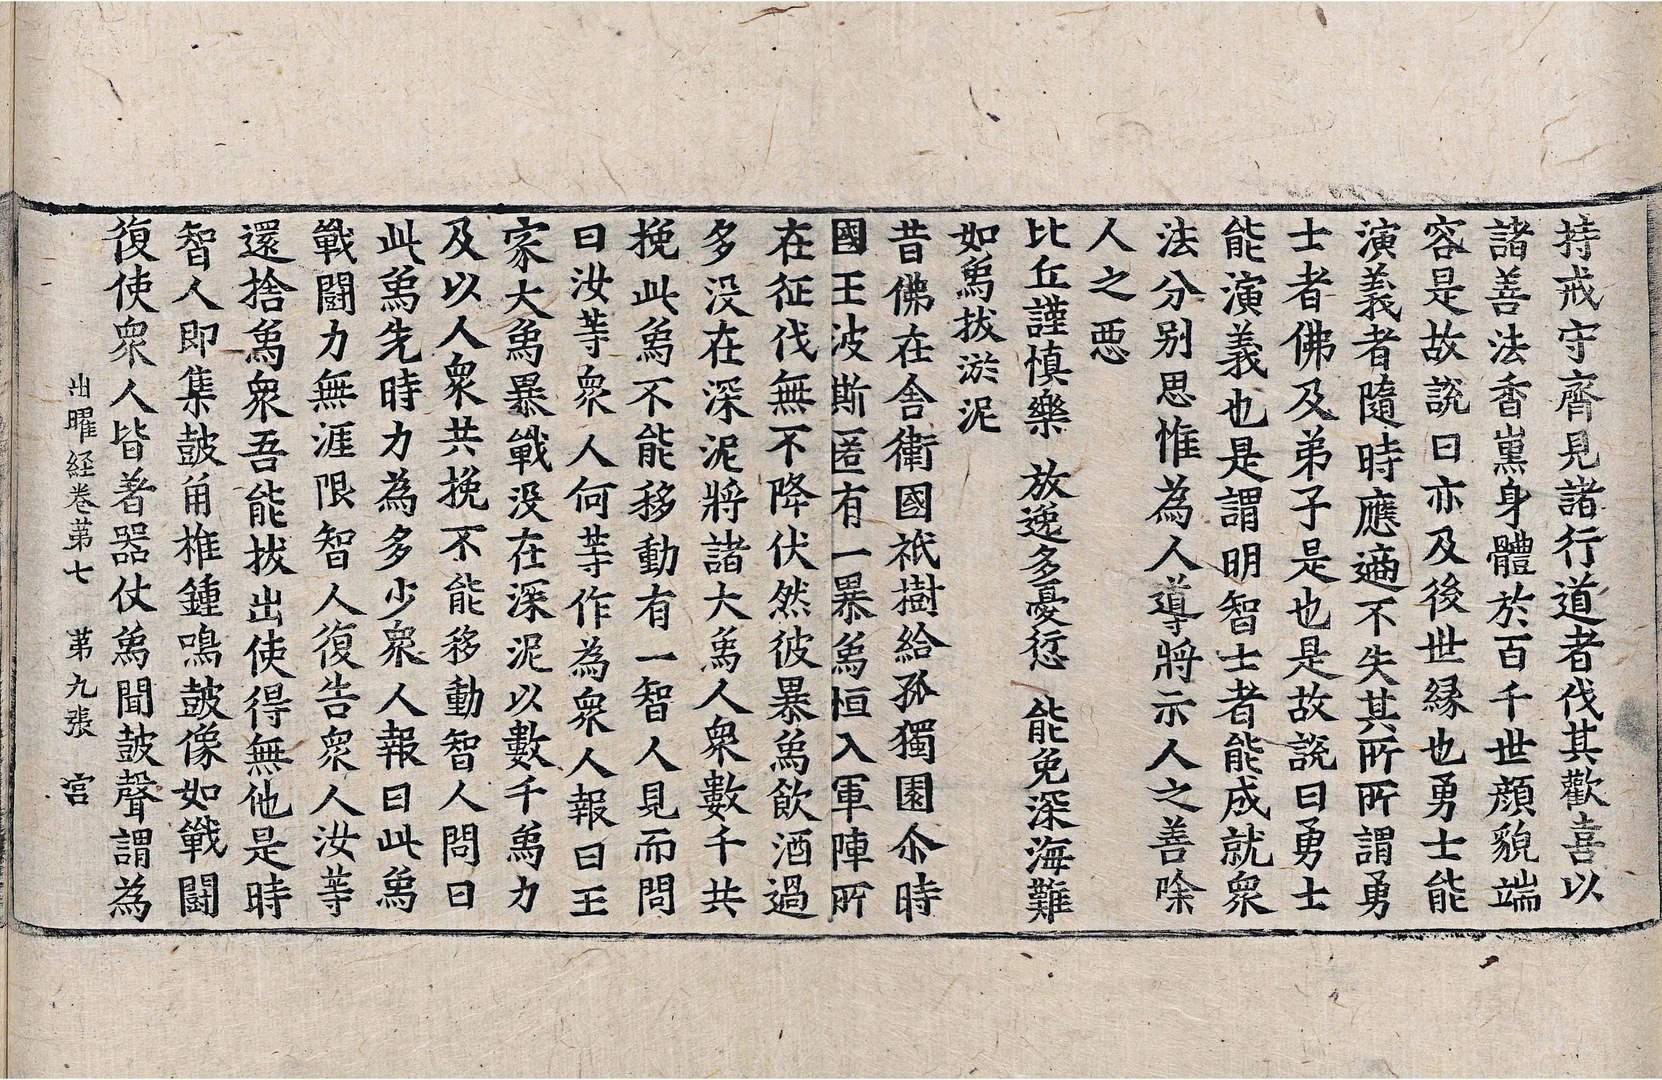 持戒守齊見諸行道者代其歡喜以
諸善法香熏身體於百千世顔貌端
容是故說曰亦及後世緣也勇士能
演義者隨時應適不失其所所謂勇
士者佛及弟子是也是故說曰勇士
能演義也是謂明智士者能成就衆
法分别思惟為人導將示人之善除
人之惡
比丘謹慎樂 放逸多憂愆 能免深海難
如爲拔淤泥
昔佛在舍衛國祇樹給孤獨園尒時
國王波斯匿有一暴爲恒入軍陣所
在征伐無不降伏然彼暴爲飲酒過
多没在深泥將諸大爲人衆數千共
挽此爲不能移動有一智人見而問
曰汝等衆人何等作為衆人報曰王
家大爲暴戰没在深泥以數千爲力
及以人衆共挽不能移動智人問曰
此爲先時力為多少衆人報曰此爲
戰鬪力無涯限智人復告衆人汝等
還捨爲衆吾能拔出使得無他是時
智人即集鼓角椎鍾鳴鼓像如戰鬪
復使衆人皆著器仗爲聞鼓聲謂為
出曜経卷苐七 苐九張 宫